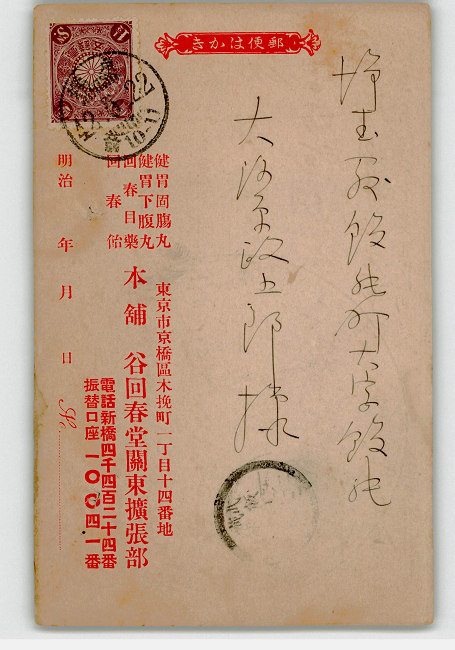 郵便はかき
埼玉縣飯能町大字飯能
大河原政五郎様
健胃固腸丸
健胃下腹丸
回春目藥
回春飴
東京市京橋區木挽町一丁目十四番地
本舖 谷回春堂關東擴張部
電話新橋四千四百二十四番
振替口座一〇〇四一番
明治 年 月 日